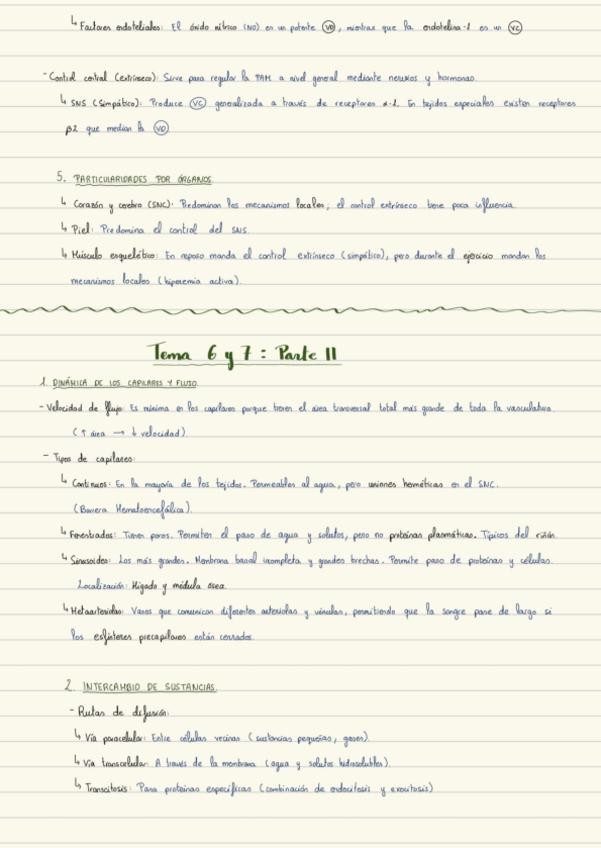 ↳ Factores endoteliales: El óxido nítrico (NO) es un potente (VD), mientras que la endotelina-1 es un (VC)
- Control central (extrínseco): Sirve para regular la PAM a nivel general mediante nervios y hormonas.
↳ SNS (Simpático): Produce (VC) generalizada a través de receptores α-1. En tejidos especiales existen receptores
β2 que median la (VD)
5. PARTICULARIDADES POR ÓRGANOS.
↳ Corazón y cerebro (SNC): Predominan los mecanismos locales; el control extrínseco tiene poca influencia.
↳ Piel: Predomina el control del SNS.
↳ Músculo esquelético: En reposo manda el control extrínseco (simpático), pero durante el ejercicio mandan los
mecanismos locales (hiperemia activa).
Tema 6 y 7: Parte II
1. DINÁMICA DE LOS CAPILARES Y FLUJO.
- Velocidad de flujo: Es mínima en los capilares porque tienen el área transversal total más grande de toda la vasculatura.
(↑ área → ↓ velocidad).
- Tipos de capilares:
↳ Continuos: En la mayoría de los tejidos. Permeables al agua, pero uniones herméticas en el SNC.
(Barrera Hematoencefálica).
↳ Fenestrados: Tienen poros. Permiten el paso de agua y solutos, pero no proteínas plasmáticas. Típicos del riñón.
↳ Sinusoides: Los más grandes. Membrana basal incompleta y grandes brechas. Permite paso de proteínas y células.
Localización: Hígado y médula ósea.
↳ Metaarteriolas: Vasos que comunican diferentes arteriolas y vénulas, permitiendo que la sangre pase de largo si
los esfínteres precapilares están cerrados.
2. INTERCAMBIO DE SUSTANCIAS.
- Rutas de difusión:
↳ Vía paracelular: Entre células vecinas (sustancias pequeñas, gases).
↳ Vía transcelular: A través de la membrana (agua y solutos hidrosolubles).
↳ Transcitosis: Para proteínas específicas (combinación de endocitosis y exocitosis)